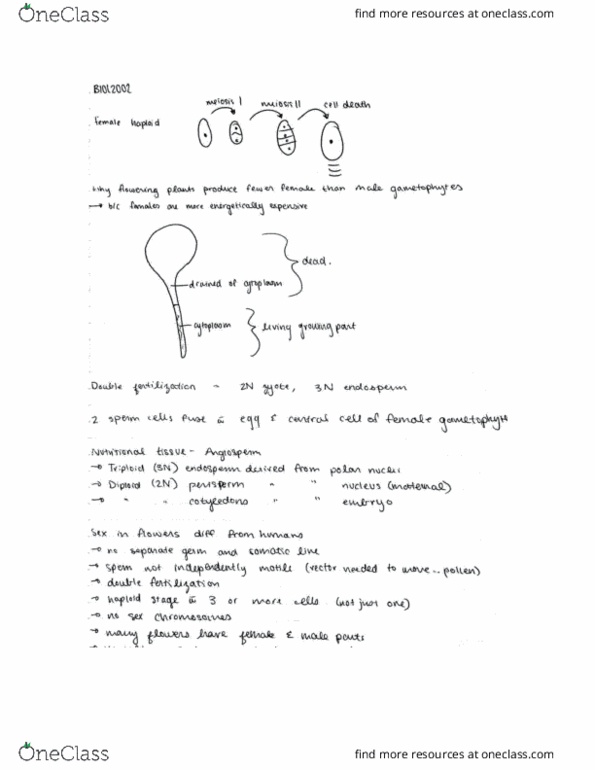 OneClass
find more resources at oneclass.com
BIOL2002
meiosis I meiosis II cell death
Female haploid
Why flowering plants produce fewer female than male gametophytes
→ b/c females are more energetically expensive
dead.
drained of cytoplasm
cytoplasm
living growing part
Double fertilization - 2N zygote, 3N endosperm
2 sperm cells fuse c̄ egg & central cell of female gametophyte
Nutritional tissue - Angiosperm
→ Triploid (3N) endosperm derived from polar nuclei
→ Diploid (2N) perisperm " " nucleus (maternal)
→ " " cotyledons " " embryo
Sex in flowers diff from humans
→ no separate germ and somatic line
→ sperm not independently motile (vector needed to move.. pollen)
→ double fertilization
→ haploid stage c̄ 3 or more cells (not just one)
→ no sex chromosomes
→ many flowers have female & male parts
OneClass
find more resources at oneclass.com